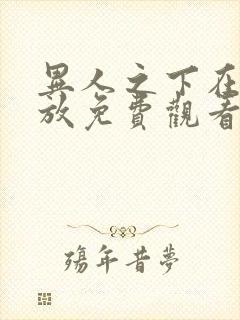 異人之下在
放免費觀看
殤年昔夢